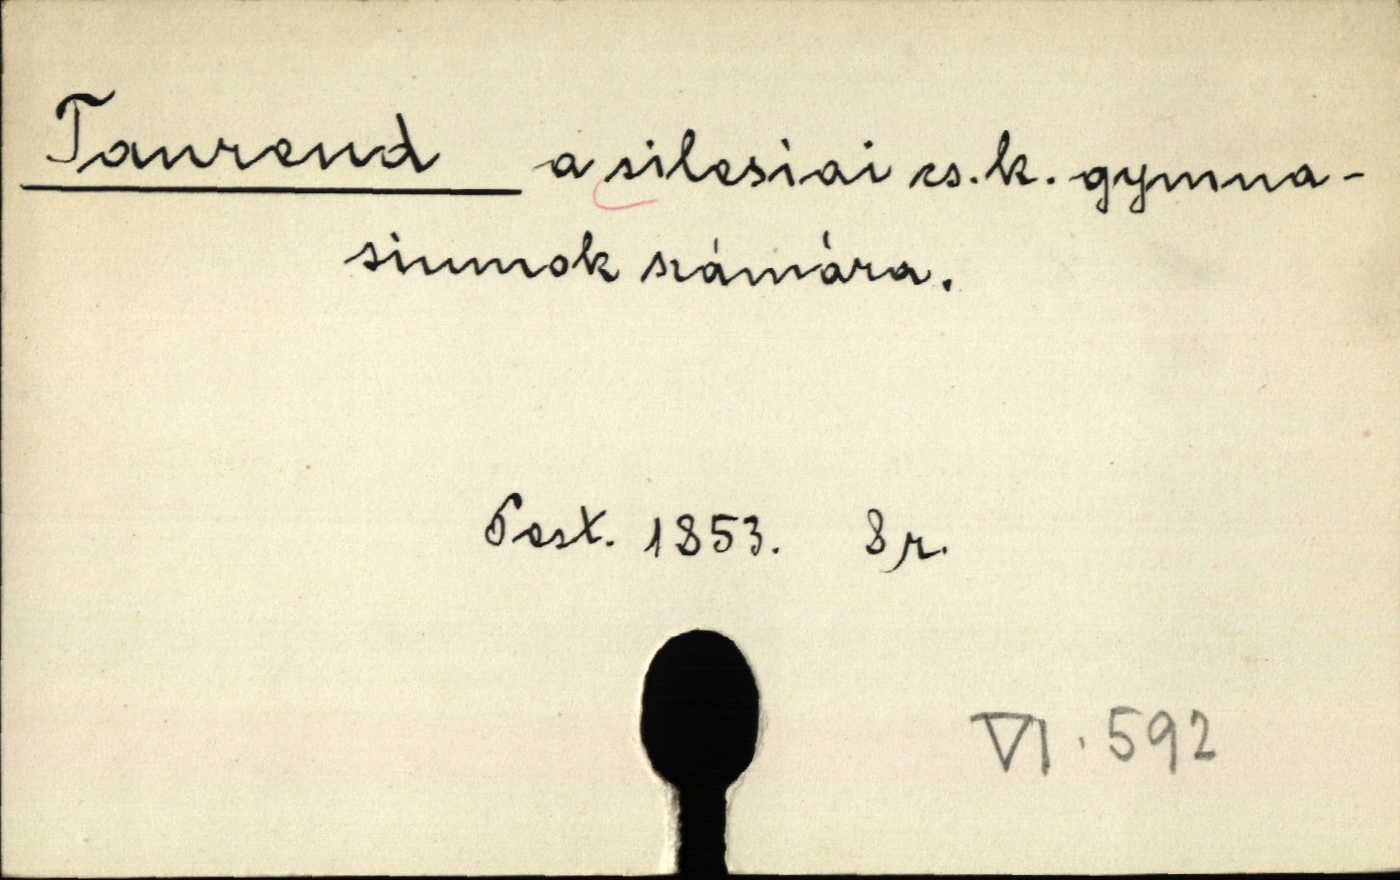 Tanrend a silesiai cs. k. gymna-
siumok számára.
Pest. 1853. 8r.
VI. 592